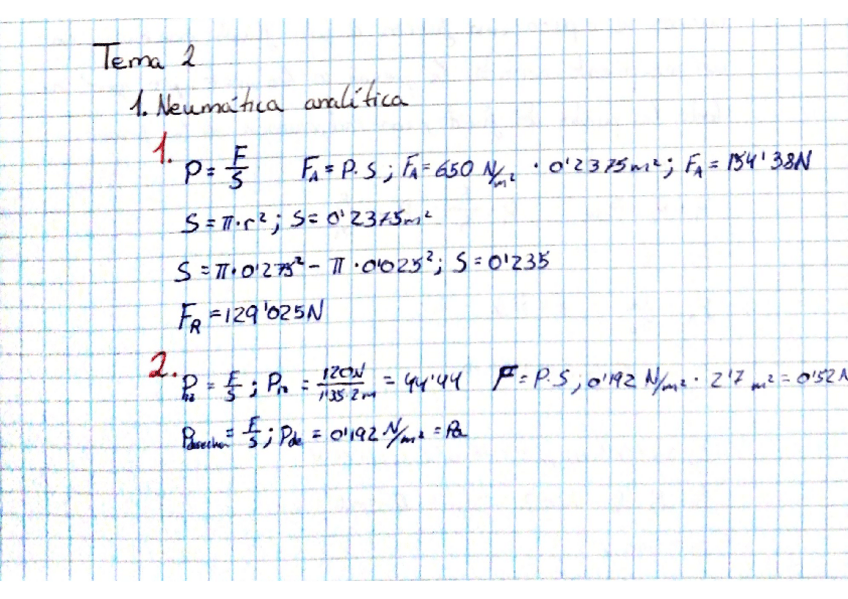 Tema 2
1. Neumática analítica
1. P = F/S   F_A = P·S ; F_A = 650 N/m² · 0'2375m² ; F_A = 154'38N
S = π·r² ; S = 0'2375m²
S = π·0'275² − π·0'025² ; S = 0'235
F_R = 129'025N
2. = F/S ; = 120N/1'35·2m = 44'44   F = P·S ; 0'192 N/m² · 2'7 m² = 0'52N
= F/S ; P_de = 0'192 N/m² = Pa